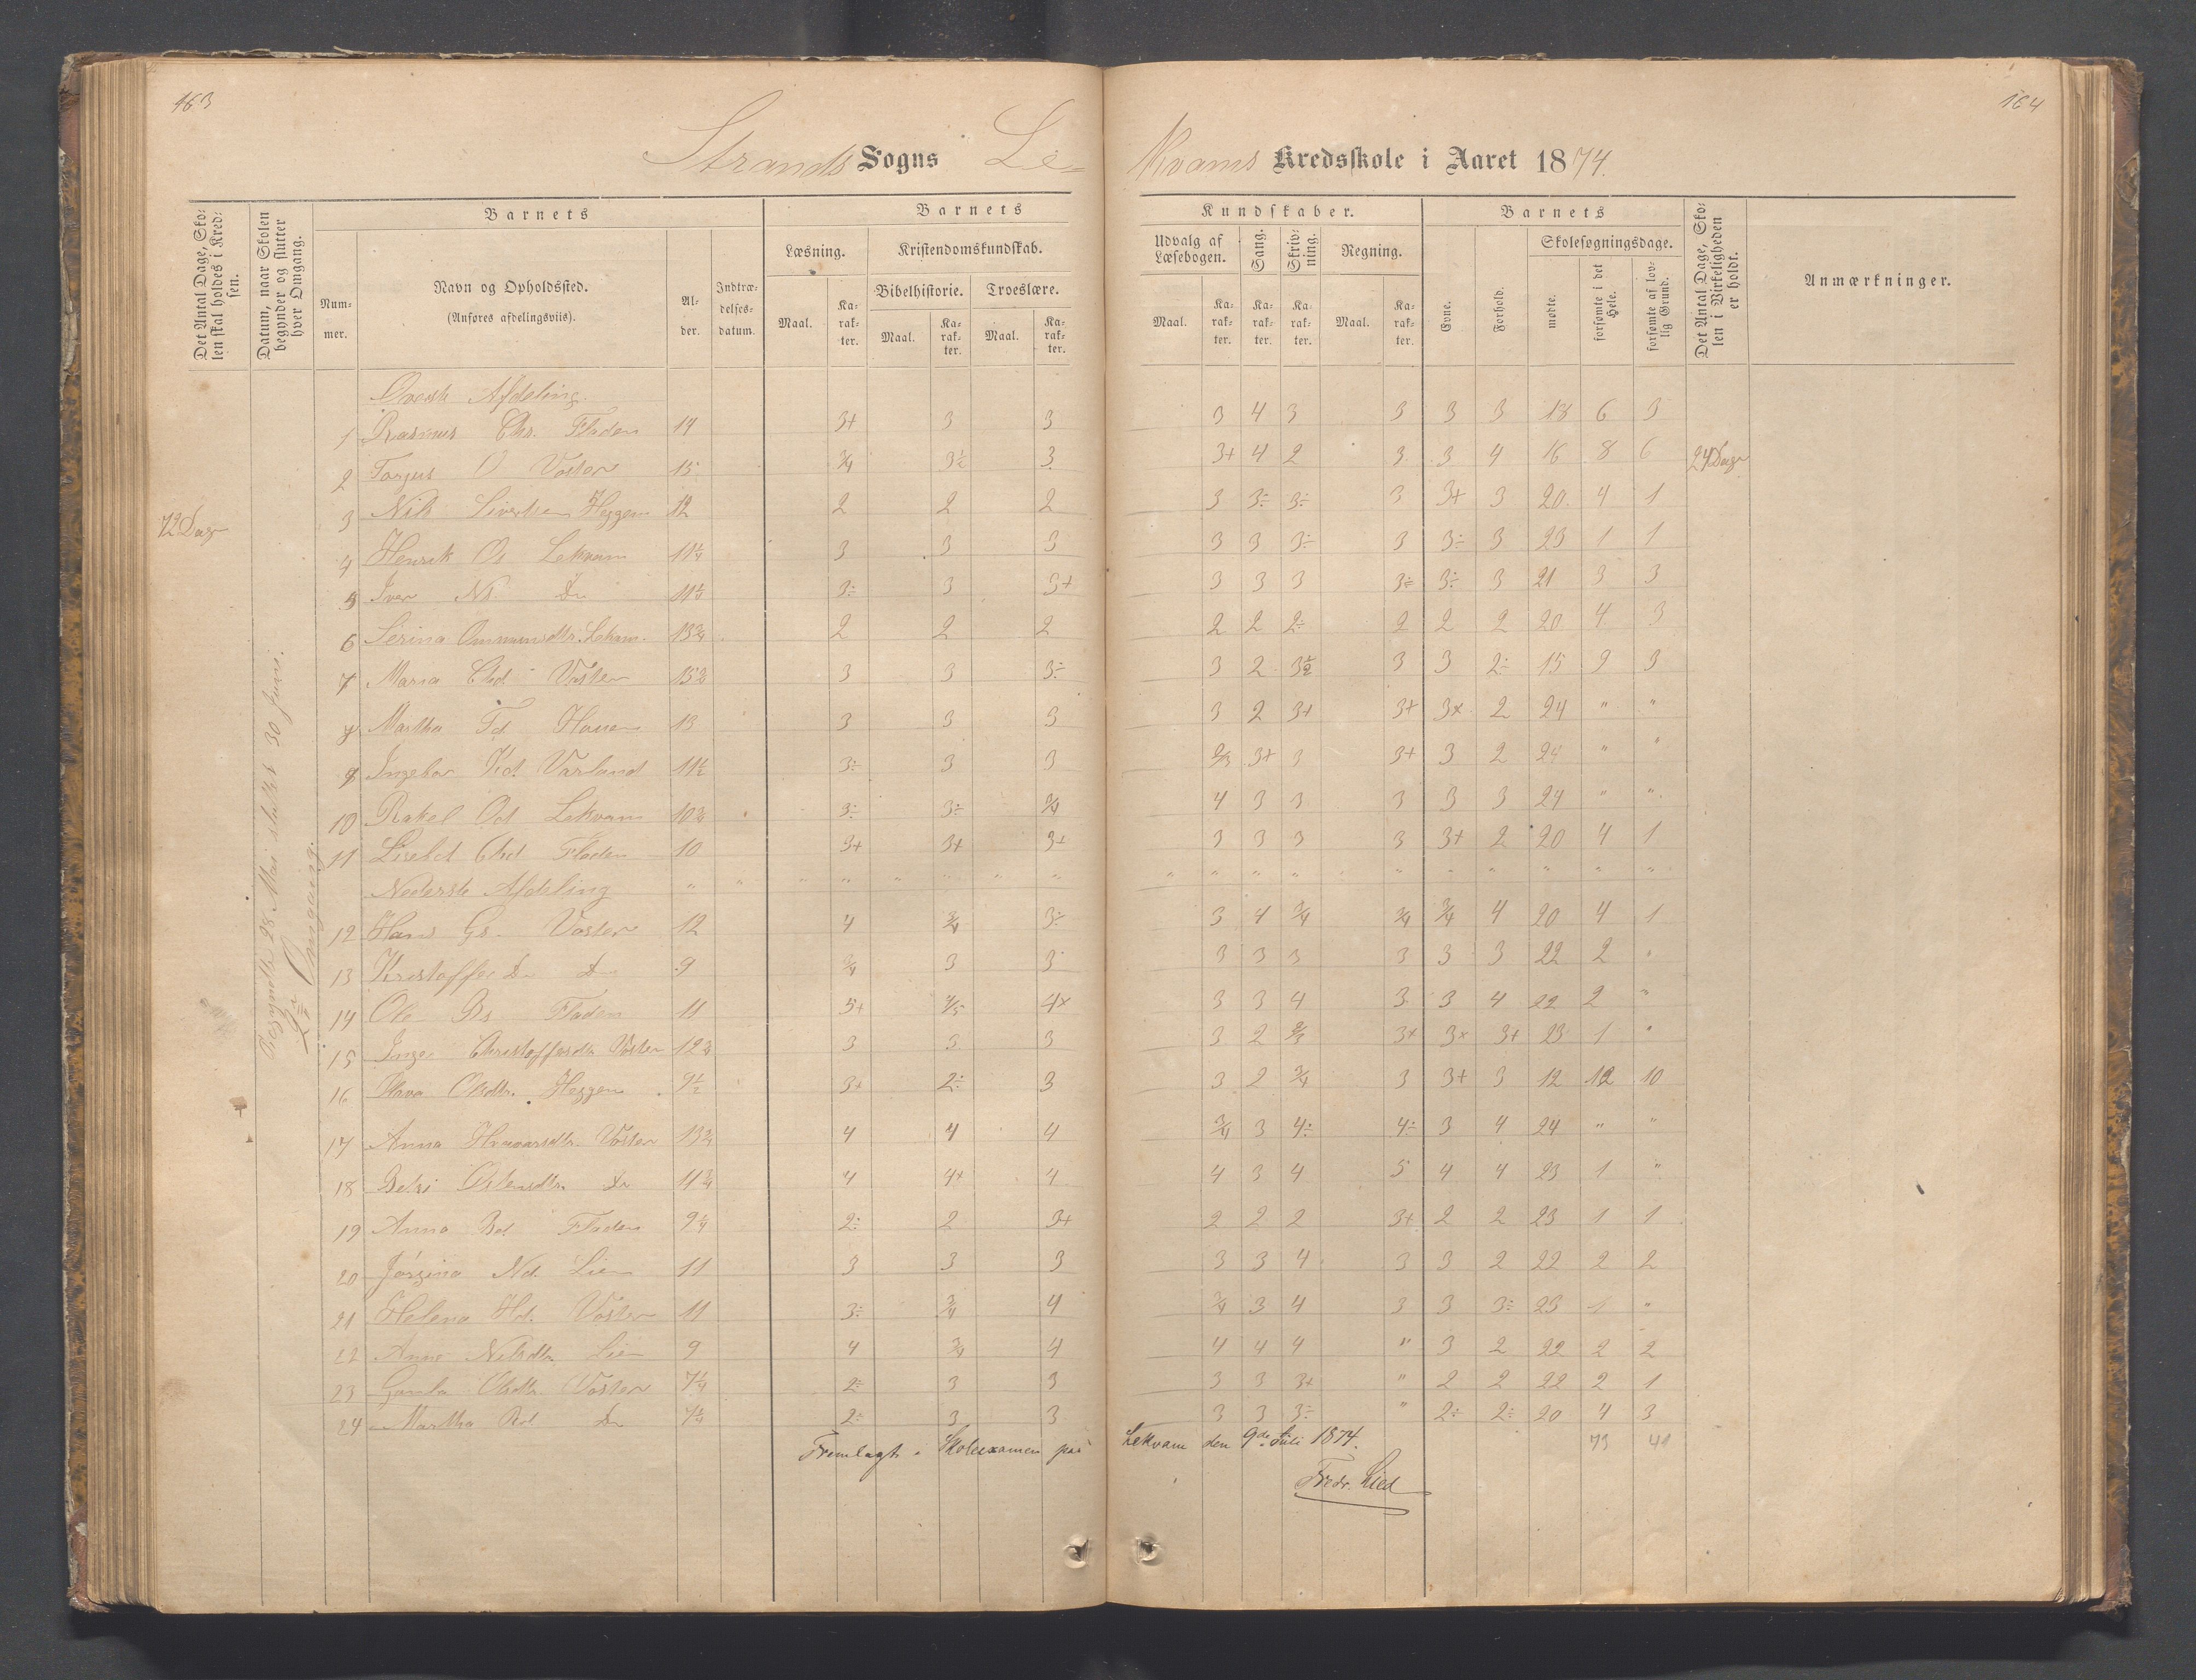 163
164
Strands Sogns Le-
Kvams Kredsskole i Aaret 1874.
Det Antal Dage, Skolen skal holdes i Kredsen.
Datum, naar Skolen begynder og slutter hver Omgang.
Barnets
Nummer.
Navn og Opholdssted.
(Anføres afdelingsviis).
Alder.
Indtrædelsesdatum.
Barnets
Kundskaber.
Læsning.
Kristendomskundskab.
Bibelhistorie.
Troeslære.
Maal.
Karakter.
Maal.
Karakter.
Maal.
Karakter.
Udvalg af Læsebogen.
Sang.
Skrivning.
Regning.
Maal.
Karakter.
Karakter.
Karakter.
Maal.
Karakter.
Barnets
Evne.
Forhold.
Skolesøgningsdage.
mødte.
forsømte i det Hele.
forsømte af lovlig Grund.
Det Antal Dage, Skolen i Virkeligheden er holdt.
Anmærkninger.
72 Dage
Begyndte 28 Mai sluttet 30 Juni.
Omgang.
Øverste Afdeling.
1 Rasmus Chr. Fladen 14 3+ 3 3 3 4 3 3 3 3 18 6 3
2 Torjus O Voster 15 3/4 3½ 3 3+ 4 2 3 3 4 16 8 6 24 Dage
3 Nils Sivertsen Heggen 12 2 2 2 3 3÷ 3÷ 3 3+ 3 20 4 1
4 Henrik Os Lekvam 11¼ 3 3 3 3 3 3÷ 3 3÷ 3 23 1 1
5 Iver Ns. Do 11½ 3÷ 3 3+ 3 3 3 3÷ 3÷ 3 21 3 3
6 Serina Ommundsdtr. Lekvam. 13¾ 2 2 2 2 2 2÷ 2 2 2 20 4 3
7 Maria Chd. Voster 13¾ 3 3 3÷ 3 2 3½ 3 3 2÷ 15 9 3
8 Martha Td Hauen 13 3 3 3 3 2 3+ 3+ 3× 2 24 " "
9 Ingebor Kd. Varland 11½ 3÷ 3 3 2/3 3+ 3 3+ 3 2 24 " "
10 Rakel Osd Lekvam 10¾ 3÷ 3÷ 3/4 4 3 3 3 3 3 24 " "
11 Lisebet Chd Fladen 10 3+ 3+ 3+ 3 3 3 3 3+ 2 20 4 1
Nederste Afdeling " " " " " " " "
12 Hans Gs. Voster 12 4 3/4 3÷ 3 4 3/4 3/4 3/4 4 20 4 1
13 Kristoffer Do Do 9 3/4 3 3 3 3 3 3 3 3 22 2 "
14 Ole Bs Fladen 11 5+ 4/5 4× 3 3 4 3 3 4 22 2 "
15 Inger Christoffersdtr Voster 12¾ 3 3 3 3 2 2/3 3+ 3× 3+ 23 1 "
16 Olsdtr. Heggen 9½ 3+ 2÷ 3 3 2 3/4 3 3+ 3 12 12 10
17 Anna Haavarsdtr. Voster 13¾ 4 4 4 3/4 3 4÷ 4÷ 3 4 24 " "
18 Betzi Ostensdtr. Do 11¾ 4 4× 4 4 3 4 5 4 4 23 1 "
19 Anna Bd Fladen 9¼ 2÷ 2 3+ 2 2 2 3+ 2 2 23 1 1
20 Jørgine Nd. Lien 11 3 3 3 3 3 4 3 3 2 22 2 2
21 Helena Hd. Voster 11 3÷ 3/4 4 3/4 3 4 3 3 3÷ 23 1 "
22 Anne Nilsdtr Lien 9 4 3/4 4 4 4 4 " 3 2 22 2 2
23 Olsdtr Voster 7¼ 2÷ 3 3 3 3 3+ " 2 2 22 2 1
24 Martha Rd Do 7½ 2÷ 3 3 3 3 3÷ " 2÷ 2÷ 20 4 3
73 41
Fremlagt i Skoleexamen paa Lekvam den 9de Juli 1874.
Fredr. Lied